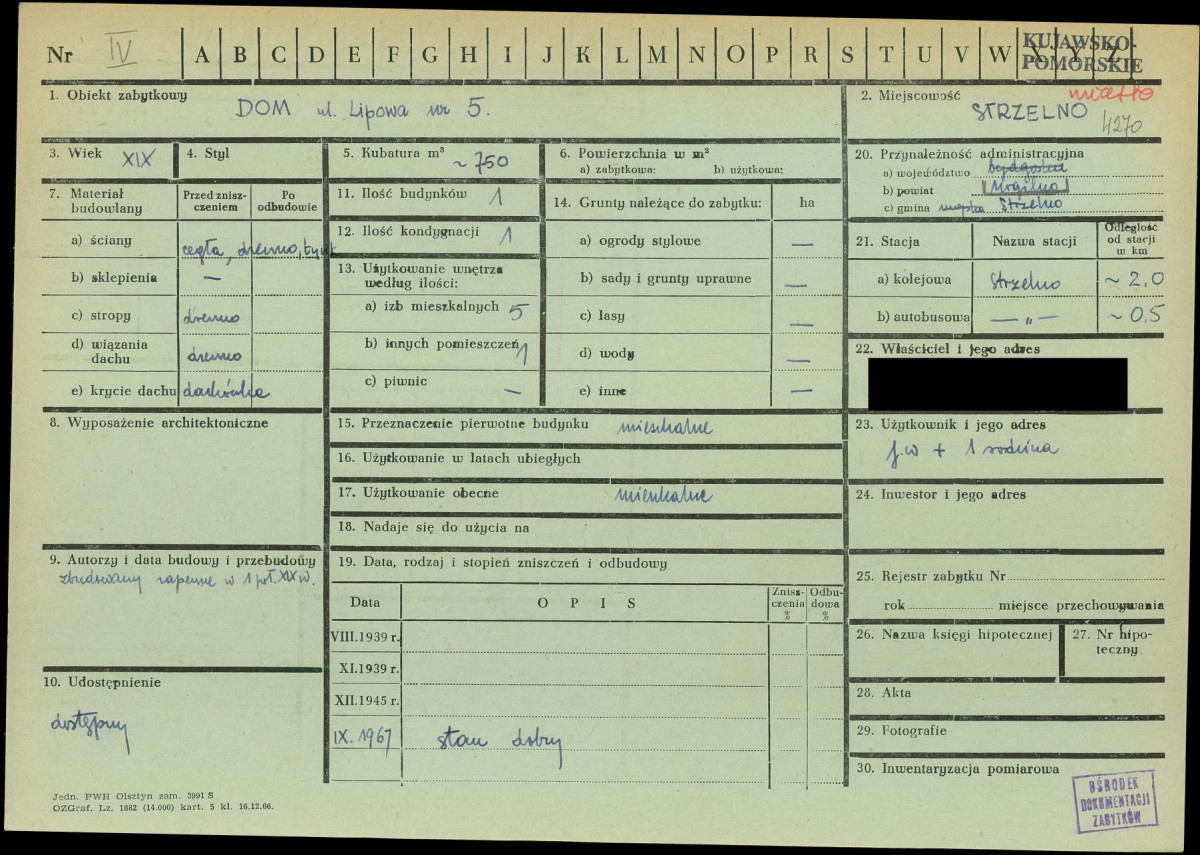 Nr IV A B C D E F G H I J K L M N O P R S T U V W X Y Z
KUJAWSKO-
POMORSKIE
1. Obiekt zabytkowy
DOM ul. Lipowa nr 5.
2. Miejscowość
miasto
STRZELNO
4270
3. Wiek XIX
4. Styl
5. Kubatura m³ ~ 750
6. Powierzchnia w m²
a) zabytkowa: b) użytkowa:
20. Przynależność administracyjna
a) województwo bydgoskie
b) powiat Mogilno
c) gmina miejska Strzelno
7. Materiał
budowlany
Przed znisz-
czeniem
Po
odbudowie
a) ściany cegła, drewno, tynk
b) sklepienia —
c) stropy drewno
d) wiązania
dachu drewno
e) krycie dachu dachówka
11. Ilość budynków 1
12. Ilość kondygnacji 1
13. Użytkowanie wnętrza
według ilości:
a) izb mieszkalnych 5
b) innych pomieszczeń 1
c) piwnic —
14. Grunty należące do zabytku: ha
a) ogrody stylowe —
b) sady i grunty uprawne —
c) lasy —
d) wody —
e) inne —
21. Stacja Nazwa stacji
Odległość
od stacji
w km
a) kolejowa Strzelno ~ 2,0
b) autobusowa — „ — ~ 0,5
22. Właściciel i jego adres
8. Wyposażenie architektoniczne
15. Przeznaczenie pierwotne budynku mieszkalne
16. Użytkowanie w latach ubiegłych
17. Użytkowanie obecne mieszkalne
18. Nadaje się do użycia na
23. Użytkownik i jego adres
j.w + 1 rodzina
24. Inwestor i jego adres
9. Autorzy i data budowy i przebudowy
zbudowany zapewne w 1 poł. XIX w.
19. Data, rodzaj i stopień zniszczeń i odbudowy
Data OPIS
Znisz-
czenia
%
Odbu-
dowa
%
VIII.1939 r.
XI.1939 r.
XII.1945 r.
IX. 1967 stan dobry
25. Rejestr zabytku Nr
rok miejsce przechowywania
26. Nazwa księgi hipotecznej
27. Nr hipo-
teczny
10. Udostępnienie
dostępny
28. Akta
29. Fotografie
30. Inwentaryzacja pomiarowa
Jedn. PWH Olsztyn zam. 3991 S
OZGraf. Lz. 1882 (14.000) kart. 5 kl. 16.12.66.
OŚRODEK
DOKUMENTACJI
ZABYTKÓW